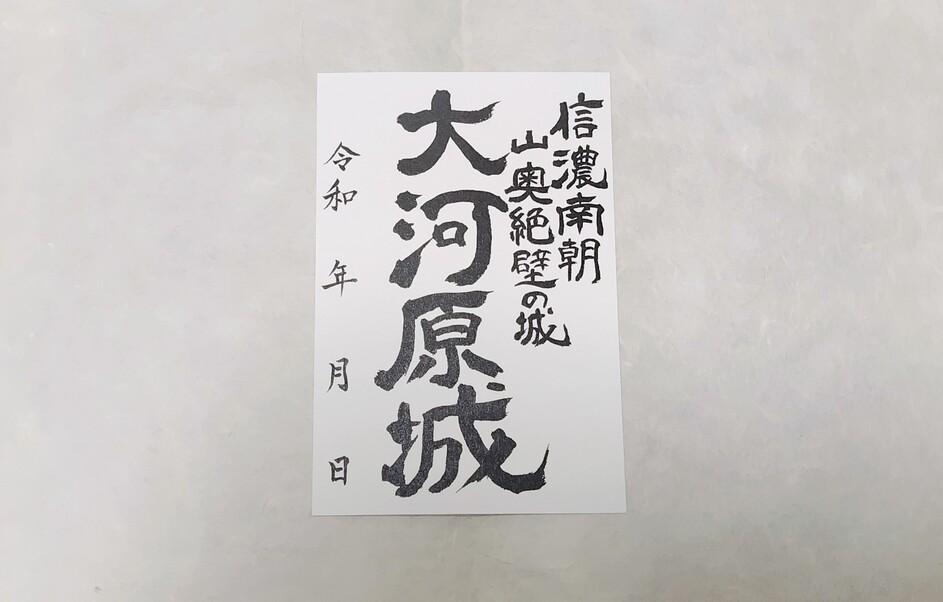 信濃南朝
山奥絶壁の城
大河原城
令和　年　月　日